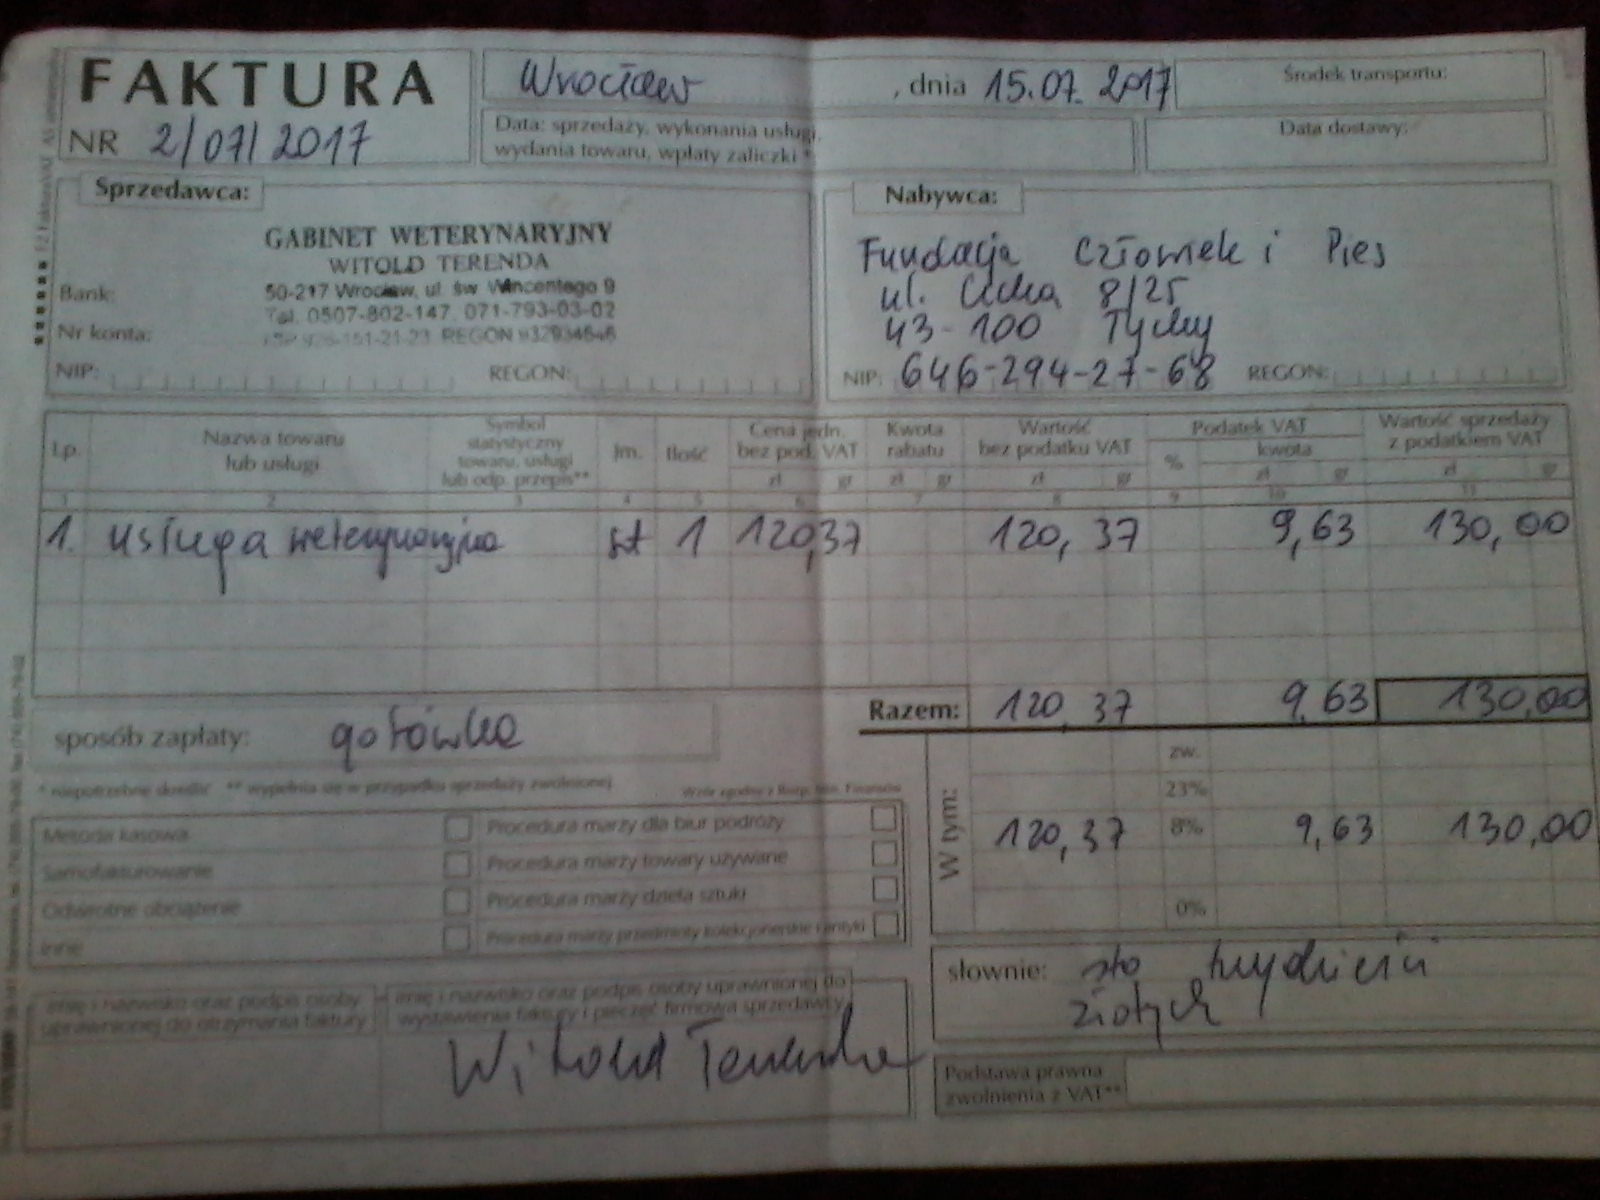 FAKTURA
NR 2/07/2017
Wrocław, dnia 15.07.2017
Środek transportu:
Data: sprzedaży, wykonania usługi,
wydania towaru, wpłaty zaliczki *
Data dostawy:
Sprzedawca:
GABINET WETERYNARYJNY
WITOLD TERENDA
50-217 Wrocław, ul. św. Wincentego 9
Tel. 0507-802-147, 071-793-03-02
REGON
Bank:
Nr konta:
NIP: REGON:
Nabywca:
Fundacja Człowiek i Pies
ul. Cicha 8/25
43-100 Tychy
NIP: 646-294-27-68 REGON:
Lp.
Nazwa towaru
lub usługi
Symbol
statystyczny
towaru, usługi
lub odp. przepis**
Jm.
Ilość
Cena jedn.
bez pod. VAT
zł gr
Kwota
rabatu
zł gr
Wartość
bez podatku VAT
zł gr
Podatek VAT
% kwota
zł gr
Wartość sprzedaży
z podatkiem VAT
zł gr
1 2 3 4 5 6 7 8 9 10 11
1. usługa weterynaryjna szt 1 120,37 120,37 9,63 130,00
Razem: 120,37 9,63 130,00
sposób zapłaty: gotówka
* niepotrzebne skreślić ** wypełnia się w przypadku sprzedaży zwolnionej
Wzór zgodny z Rozp. Min. Finansów
W tym:
zw.
23%
120,37 8% 9,63 130,00
0%
Metoda kasowa
Samofakturowanie
Odwrotne obciążenie
Inne
Procedura marży dla biur podróży
Procedura marży towary używane
Procedura marży dzieła sztuki
Procedura marży przedmioty kolekcjonerskie i antyki
słownie: sto trzydzieści
złotych
imię i nazwisko oraz podpis osoby
uprawnionej do otrzymania faktury
imię i nazwisko oraz podpis osoby uprawnionej do
wystawienia faktury i pieczęć firmowa sprzedawcy
Witold Terenda
Podstawa prawna
zwolnienia z VAT**